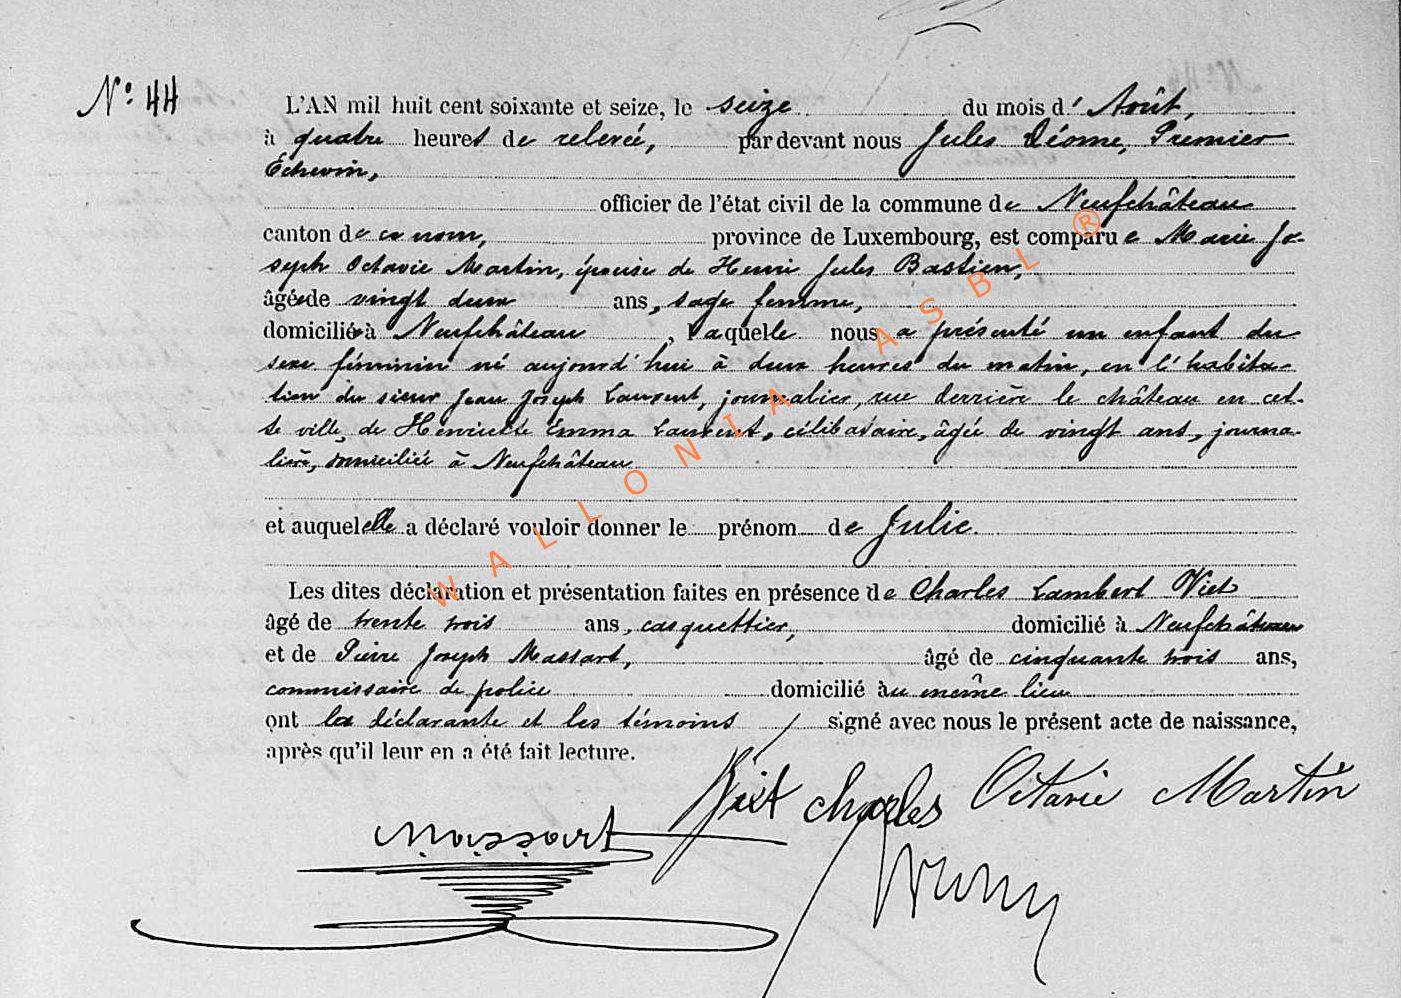 N° 44
L'AN mil huit cent soixante et seize, le seize du mois d'Août,
à quatre heures de relevée, par devant nous Jules Déome, Premier
Echevin,
officier de l'état civil de la commune de Neufchâteau
canton de ce nom, province de Luxembourg, est comparue Marie Jo-
seph Octavie Martin, épouse de Henri Jules Bastien,
âgée de vingt deux ans, sage femme,
domiciliée à Neufchâteau, laquelle nous a présenté un enfant du
sexe féminin né aujourd'hui à deux heures du matin, en l'habita-
tion du sieur Jean Joseph Laurent, journalier, rue derrière le château en cet-
te ville, de Henriette Emma Laurent, célibataire, âgée de vingt ans, journa-
lière, domiciliée à Neufchâteau
et auquel elle a déclaré vouloir donner le prénom de Julie.
Les dites déclaration et présentation faites en présence de Charles Lambert Viet
âgé de trente trois ans, casquettier, domicilié à Neufchâteau
et de Pierre Joseph Massart, âgé de cinquante trois ans,
commissaire de police domicilié au même lieu
ont la déclarante et les témoins signé avec nous le présent acte de naissance,
après qu'il leur en a été fait lecture.
Viet Charles Octavie Martin
Massart
WALLONIA ASBL ®